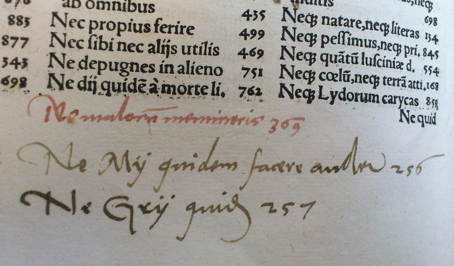 ab omnibus
885 Nec propius ferire 435 Neq; natare, neq; literas 134
877 Nec sibi nec alijs utilis 499 Neq; pessimus, neq; pri. 845
343 Ne depugnes in alieno 469 Neq; quãtũ lusciniæ d. 554
698 Ne dij quidẽ à morte li. 751 Neq; cœlũ, neq; terrã atti. 168
762 Neq; Lydorum carycas
Ne quid
Ne malorũ memineris 369
Ne Mÿ quidem facere 256
Ne Grÿ quidẽ 257